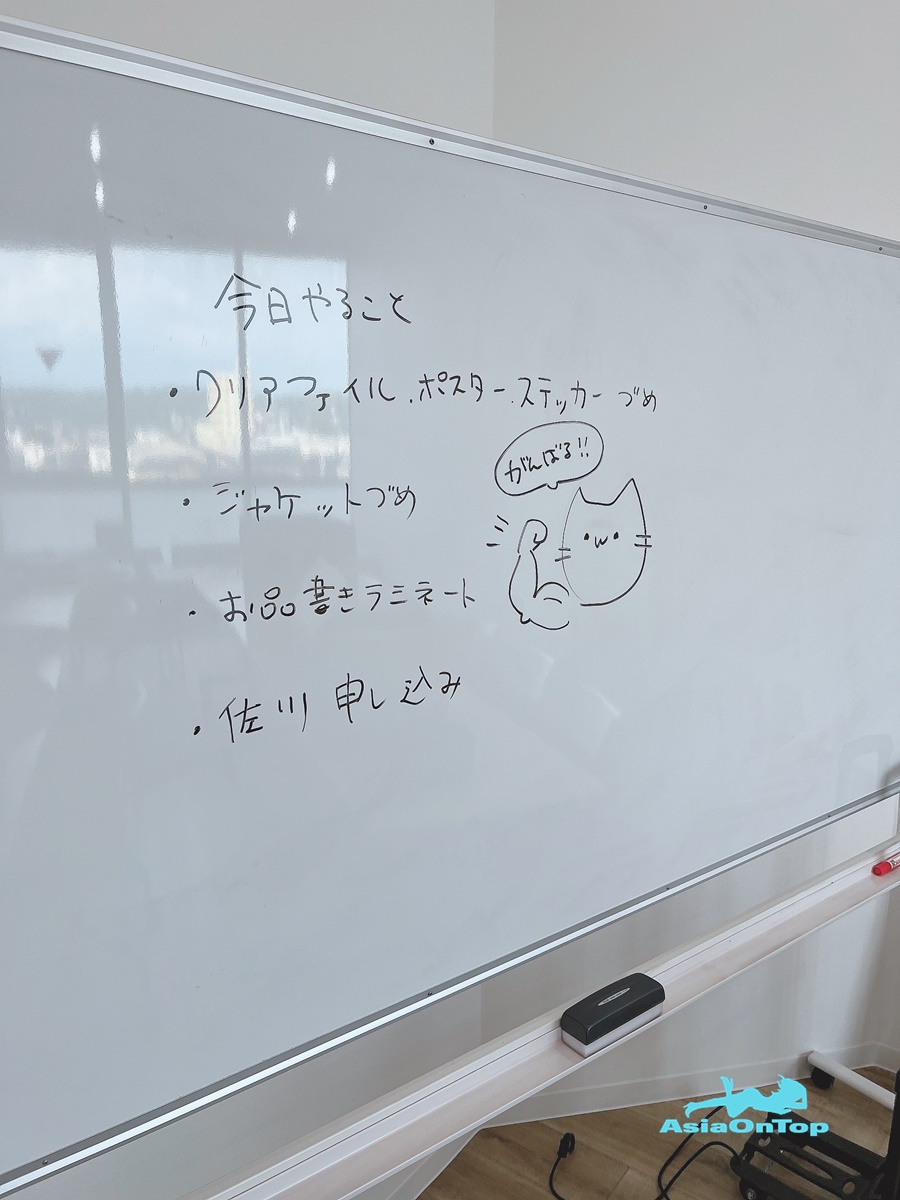 今日やること
・クリアファイル、ポスター、ステッカーづめ
がんばる!!
・ジャケットづめ
・お品書きラミネート
・佐川申し込み
AsiaOnTop